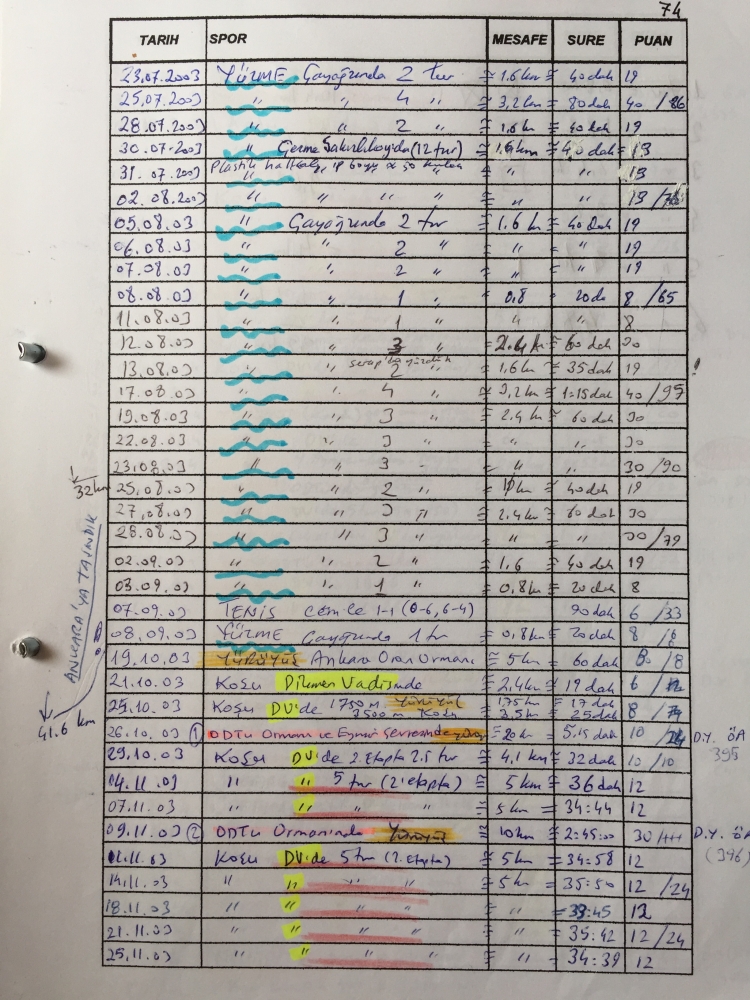 74
TARİH SPOR MESAFE SURE PUAN
23.07.2003 YÜZME Çayağzında 2 tur ≅ 1.6 km ≅ 40 dak 19
25.07.2003 " " 4 " ≅ 3,2 km ≅ 80 dak 40 /86
28.07.2003 " " 2 " ≅ 1.6 km ≅ 40 dak 19
30.07.2003 " Çeşme (12 tur) ≅ 1.6 km ≅ 40 dak = 19
31.07.2003 " " " 19
02.08.2003 " " " " " " 19
05.08.03 " Çayağzında 2 tur ≅ 1.6 km ≅ 40 dak 19
06.08.03 " " 2 " " " 19
07.08.03 " " 2 " " " 19
08.08.03 " " 1 " = 0.8 = 20 da 8 /65
11.08.03 " " 1 " " " 8
12.08.03 " " 3 " 2.4 k = 60 dak 30
serap'la yüzdük
13.08.03 " " 2 " ≅ 1.6 km = 35 dak 19 !
17.08.03 " " 4 " ≅ 3,2 km ≅ 1:15 dak 40 /97
19.08.03 " " 3 " ≅ 2.4 km ≅ 60 dak 30
22.08.03 " " 3 " " " 30
23.08.03 " " 3 " = " " 30 /90
32 km
25.08.03 " " 2 " = km = 40 dak 19
27.08.03 " " 3 " ≅ 2.4 km = 60 dak 30
28.08.03 " " 3 " = " = " 30 /79
02.09.03 " " 2 " = 1.6 = 40 dak 19
03.09.03 " " 1 " = 0.8 km = 20 dak 8
ANKARA'YA TAŞINDIK
07.09.03 TENİS cem ile 1-1 (0-6, 6-4) 90 dak 6 /33
08.09.03 YÜZME Çayağzında 1 tur = 0,8 km = 20 dak 8 /8
19.10.03 YÜRÜYÜŞ Ankara Oran Ormanı ≅ 5 km = 60 dak 8 /8
21.10.03 KOŞU Dikmen Vadisinde ≅ 2.4 km = 19 dak 6
25.10.03 KOŞU DV'de 1750 m Yürüyüş = 1.75 km = 17 dak 8
3500 m Koşu = 3.5 km = 25 dak
41.6 km
26.10.03 ① ODTÜ Ormanı ve Eymir Çevresinde yürüyüş ≅ 20 km = 5.15 dak 10 /24 D.Y. ÖA
395
29.10.03 KOŞU DV'de 2. Etapta 2.5 tur = 4,1 km = 32 dak 10 /10
04.11.03 " " 5 tur (2. etapta) ≅ 5 km = 36 dak 12
07.11.03 " " " " ≅ 5 km = 34:44 12
09.11.03 ② ODTÜ Ormanında Yürüyüş = 10 km = 2:45:00 30 D.Y. ÖA
(396)
11.11.03 KOŞU DV'de 5 tur (2. Etapta) ≅ 5 km = 34:58 12
14.11.03 " " " " ≅ 5 km = 35:50 12 /24
18.11.03 " " " " ≅ " = 33:45 12
21.11.03 " " " " = " = 35:42 12 /24
25.11.03 " " " " ≅ " = 34:39 12